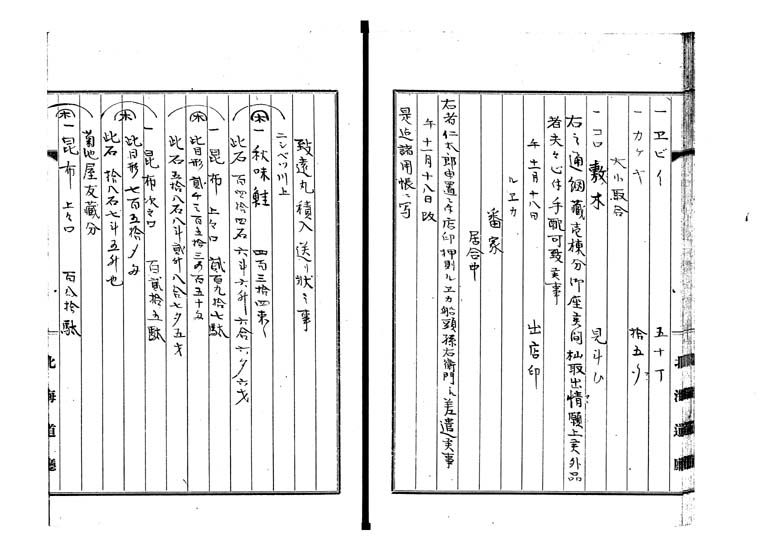 一 ヱビイ 五十丁
一 カケヤ 拾五り
大小取合
一 コロ敷木 見斗ひ
右之通個蔵壱棟分御座候間杣取出情願上候外品
者夫々心作手配可致候事
午十一月十八日 出店印
ルヱカ
番家
居合中
右者仁太郎申置之店印押則ルヱカ船頭孫右衛門ニ差遣候事
午十一月十八日改
是迄諸用帳ニ写
致遠丸積入送り状之事
ニシベツ川上
一 秋味鮭 四百三拾四束
此石百四拾四石六斗六升六合六夕六才
一 昆布 上々口 貳百九拾七駄
此目形貳千三百五拾三〆百五十匁
此石五拾八石八斗貳升八合七夕五才
一 昆布 次々口 百貳拾五駄
此目形七百五拾〆匁
此石拾八石七斗五升也
菊池屋友蔵分
一 昆布 上々口 百八拾駄
北海道廳
北海道廳